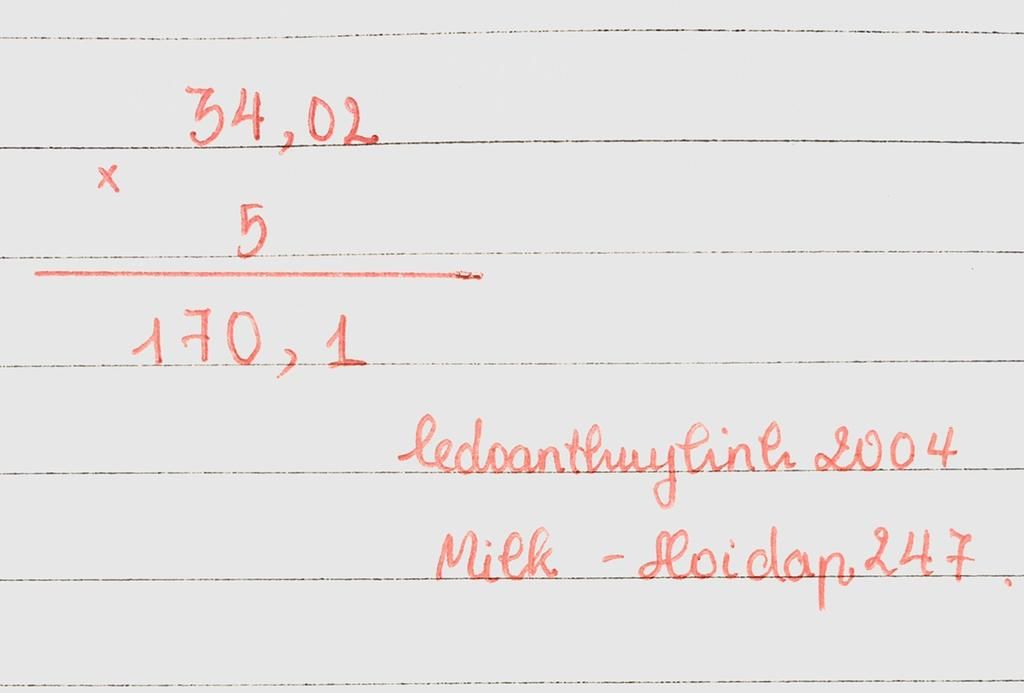 34,02
x
5
170,1
ledoanthuylinh 2004
Milk - Hoidap247.